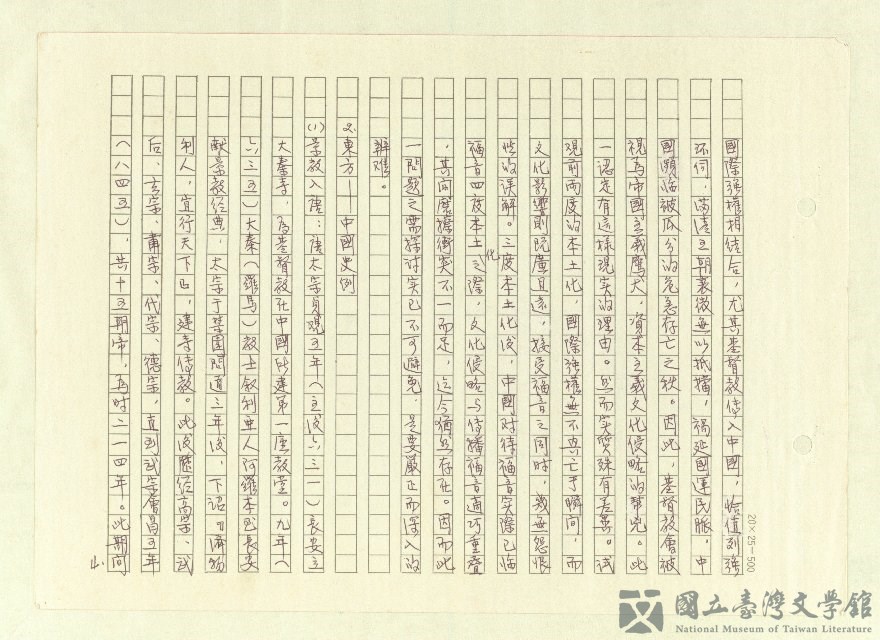 國際強權相結合，尤其基督教傳入中國，恰值列強
环伺，满清王朝衰微無以抵擋，禍延國運民脈，中
國瀕临被瓜分的危急存亡之秋。因此，基督教會被
視為帝國主義鷹犬，資本主義文化侵略的幫兇。此
一認定有這樣現實的理由。然而实質殊有差异。試
观前兩度的本土化，國際強權無不興亡于瞬间，而
文化影響則既廣且遠，接受福音之同時，幾無怨恨
性的误解。三度本土化後，中國对待福音实際已临
福音四度本土化之際，文化侵略与传播福音適巧重疊
，其间磨擦衝突不一而足，迄今猶然存在。因而此
一問題之需探讨实已不可避免，是要嚴正而深入的
辨难。
2.東方——中國史例
(1)景教入唐：唐太宗貞观五年（主後六三一）長安立
大秦寺，為基督教在中國所建第一座教堂。九年（
六三五）大秦（羅馬）教士叙利亚人阿羅本至長安
献景教经典，太宗于禁園問道三年後，下诏『濟物
利人，宜行天下』，建寺传教。此後歷经高宗、武
后、玄宗、肅宗、代宗、德宗，直到武宗會昌五年
（八四五），共十五期帝，為时二一四年。此期间
20×25=500
國立臺灣文學館
National Museum of Taiwan Literature